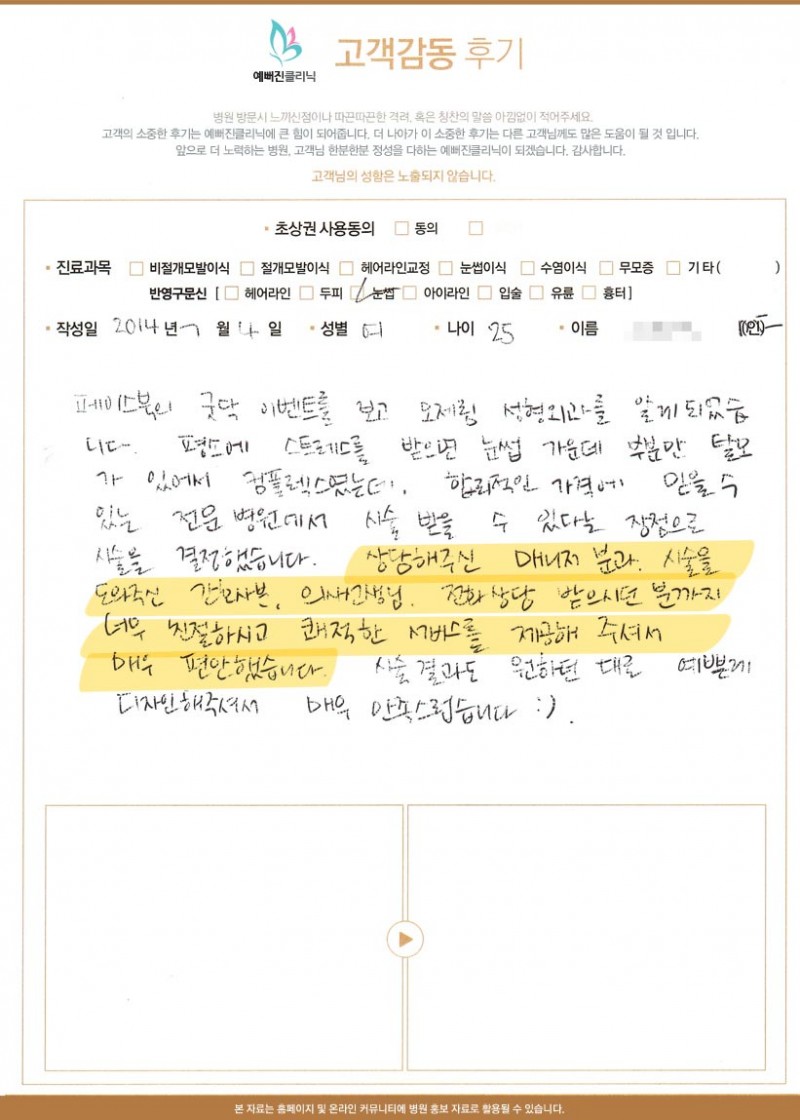 예뻐진클리닉
고객감동 후기
병원 방문시 느끼신점이나 따끈따끈한 격려, 혹은 칭찬의 말씀 아낌없이 적어주세요.
고객의 소중한 후기는 예뻐진클리닉에 큰 힘이 되어줍니다. 더 나아가 이 소중한 후기는 다른 고객님께도 많은 도움이 될 것 입니다.
앞으로 더 노력하는 병원, 고객님 한분한분 정성을 다하는 예뻐진클리닉이 되겠습니다. 감사합니다.
고객님의 성함은 노출되지 않습니다.
• 초상권 사용동의 □ 동의 □
• 진료과목 □ 비절개모발이식 □ 절개모발이식 □ 헤어라인교정 □ 눈썹이식 □ 수염이식 □ 무모증 □ 기타( )
반영구문신 [ □ 헤어라인 □ 두피 ☑ 눈썹 □ 아이라인 □ 입술 □ 유륜 □ 흉터 ]
• 작성일 2014 년 7 월 4 일 • 성별 여 • 나이 25 • 이름 (인)
페이스북의 굿닥 이벤트를 보고 모제림 성형외과를 알게되었습
니다. 평소에 스트레스를 받으면 눈썹 가운데 부분만 탈모
가 있어서 컴플렉스였는데, 합리적인 가격에 믿을 수
있는 전문 병원에서 시술 받을 수 있다는 장점으로
시술을 결정했습니다. 상담해주신 매니저 분과, 시술을
도와주신 간호사분, 의사선생님, 전화상담 받으시던 분까지
너무 친절하시고 쾌적한 서비스를 제공해 주셔서
매우 편안했습니다. 시술 결과도 원하던 대로 예쁘게
디자인해주셔서 매우 만족스럽습니다 :).
본 자료는 홈페이지 및 온라인 커뮤니티에 병원 홍보 자료로 활용될 수 있습니다.